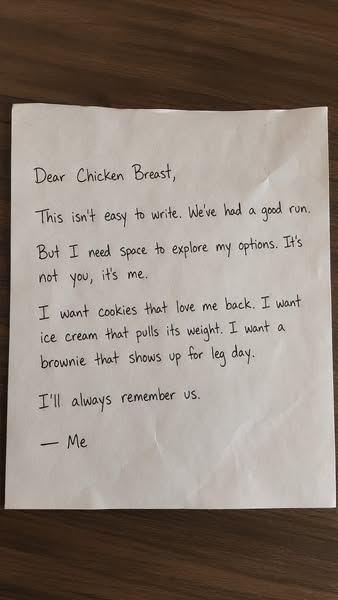 Dear Chicken Breast,
This isn't easy to write. We've had a good run.
But I need space to explore my options. It's
not you, it's me.
I want cookies that love me back. I want
ice cream that pulls its weight. I want a
brownie that shows up for leg day.
I'll always remember us.
— Me